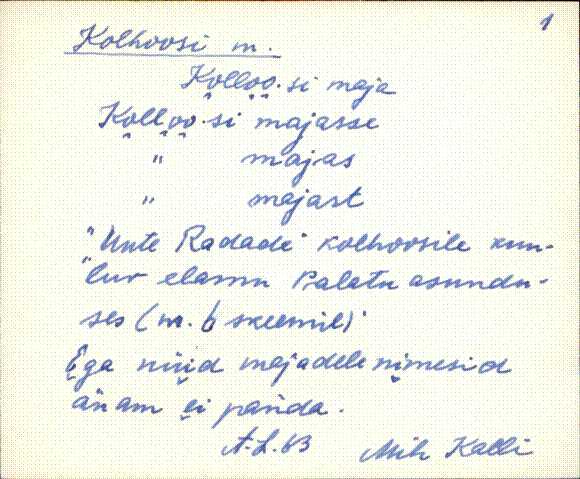 1
Kolhoosi m.
Kolloo·si maja
Kolloo·si majasse
" majas
" majast
"Uute Radade" kolhoosile kuu-
luv elamu Palatu asundu-
ses (nr. 6 skeemil)
Ega nüid majadele nimesid
änam ei panda.
A.L. 63 Mih Kalli